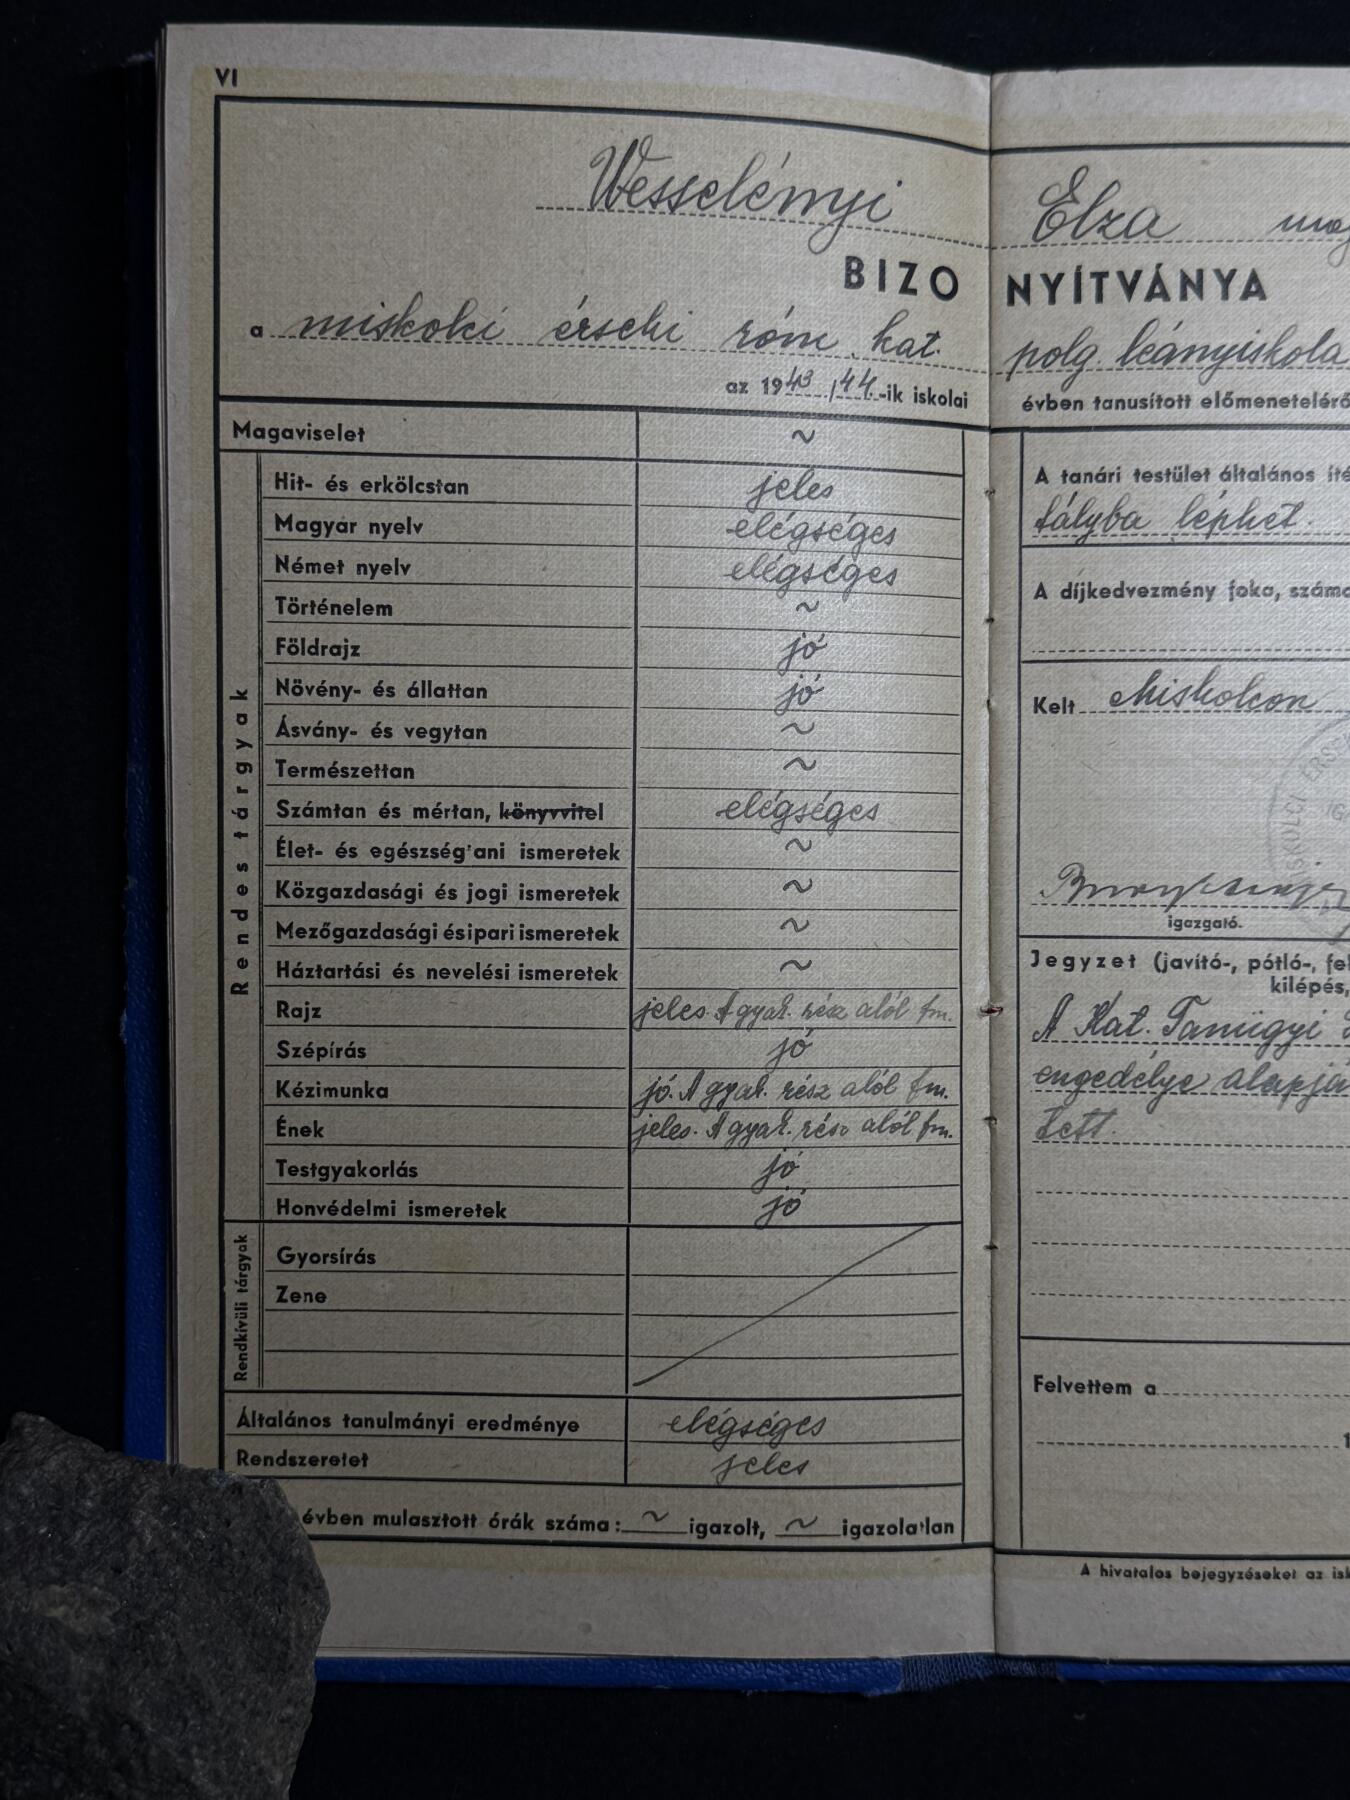 VI
Wesselényi Elza mag
BIZONYÍTVÁNYA
a miskolci érseki róm. kat. polg. leányiskola
az 1943/44.-ik iskolai évben tanusított előmenetelérő
Magaviselet ~
Rendes tárgyak
Hit- és erkölcstan jeles
Magyar nyelv elégséges
Német nyelv elégséges
Történelem ~
Földrajz jó
Növény- és állattan jó
Ásvány- és vegytan ~
Természettan ~
Számtan és mértan, könyvvitel elégséges
Élet- és egészségtani ismeretek ~
Közgazdasági és jogi ismeretek ~
Mezőgazdasági és ipari ismeretek ~
Háztartási és nevelési ismeretek ~
Rajz jeles. A gyak. rész alól fm.
Szépírás jó
Kézimunka jó. A gyak. rész alól fm.
Ének jeles. A gyak. rész alól fm.
Testgyakorlás jó
Honvédelmi ismeretek jó
Rendkívüli tárgyak
Gyorsírás
Zene
Általános tanulmányi eredménye elégséges
Rendszeretet jeles
évben mulasztott órák száma: ~ igazolt, ~ igazolatlan
A tanári testület általános íté
tályba léphet.
A díjkedvezmény foka, száma
Kelt Miskolcon
MISKOLCI ÉRSEK
IG
igazgató.
Jegyzet (javító-, pótló-, fel
kilépés,
A Kat. Tanügyi
engedélye alapjá
tett.
Felvettem a
1
A hivatalos bejegyzéseket az isk